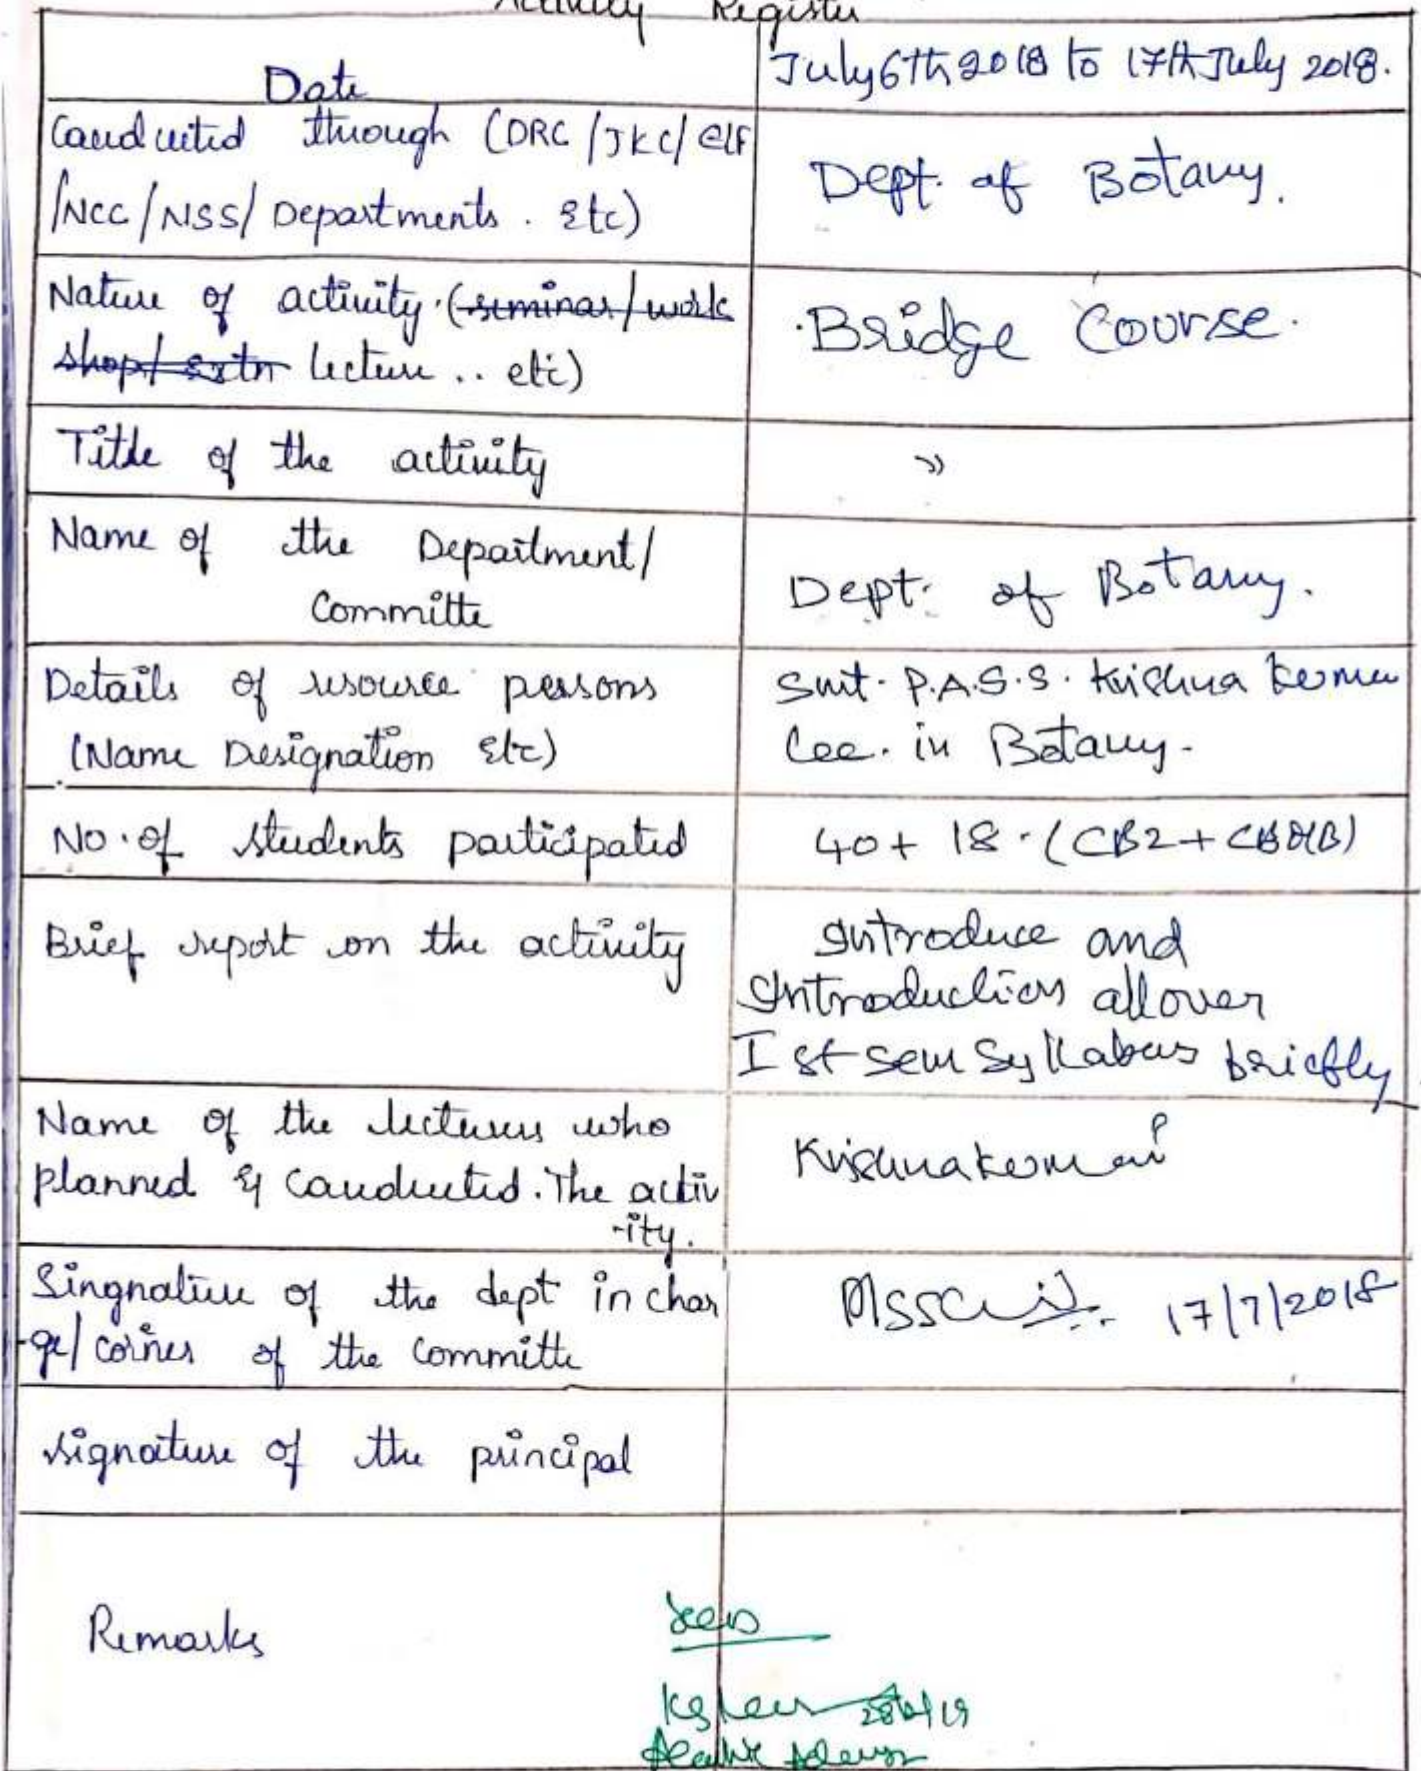 Activity Register
Date
July 6th 2018 to 17th July 2018.
Conducted through (DRC/JKC/ELF
/NCC/NSS/Departments. Etc)
Dept. of Botany.
Nature of activity. (seminar/work
shop/extn lecture .. etc)
Bridge Course.
Title of the activity
"
Name of the Department/
Committe
Dept. of Botany.
Details of resource persons
(Name Designation Etc)
Smt. P.A.S.S. Krishna
Lec. in Botany.
No. of students participated
40 + 18. (CBZ +
Brief report on the activity
Introduce and
Introduction allover
I st sem Syllabus briefly
Name of the lecturers who
planned & Conducted. The activ
-ity.
Krishnakumari P
Singnature of the dept in char
-ge/corner of the Committe
17/7/2018
signature of the principal
Remarks